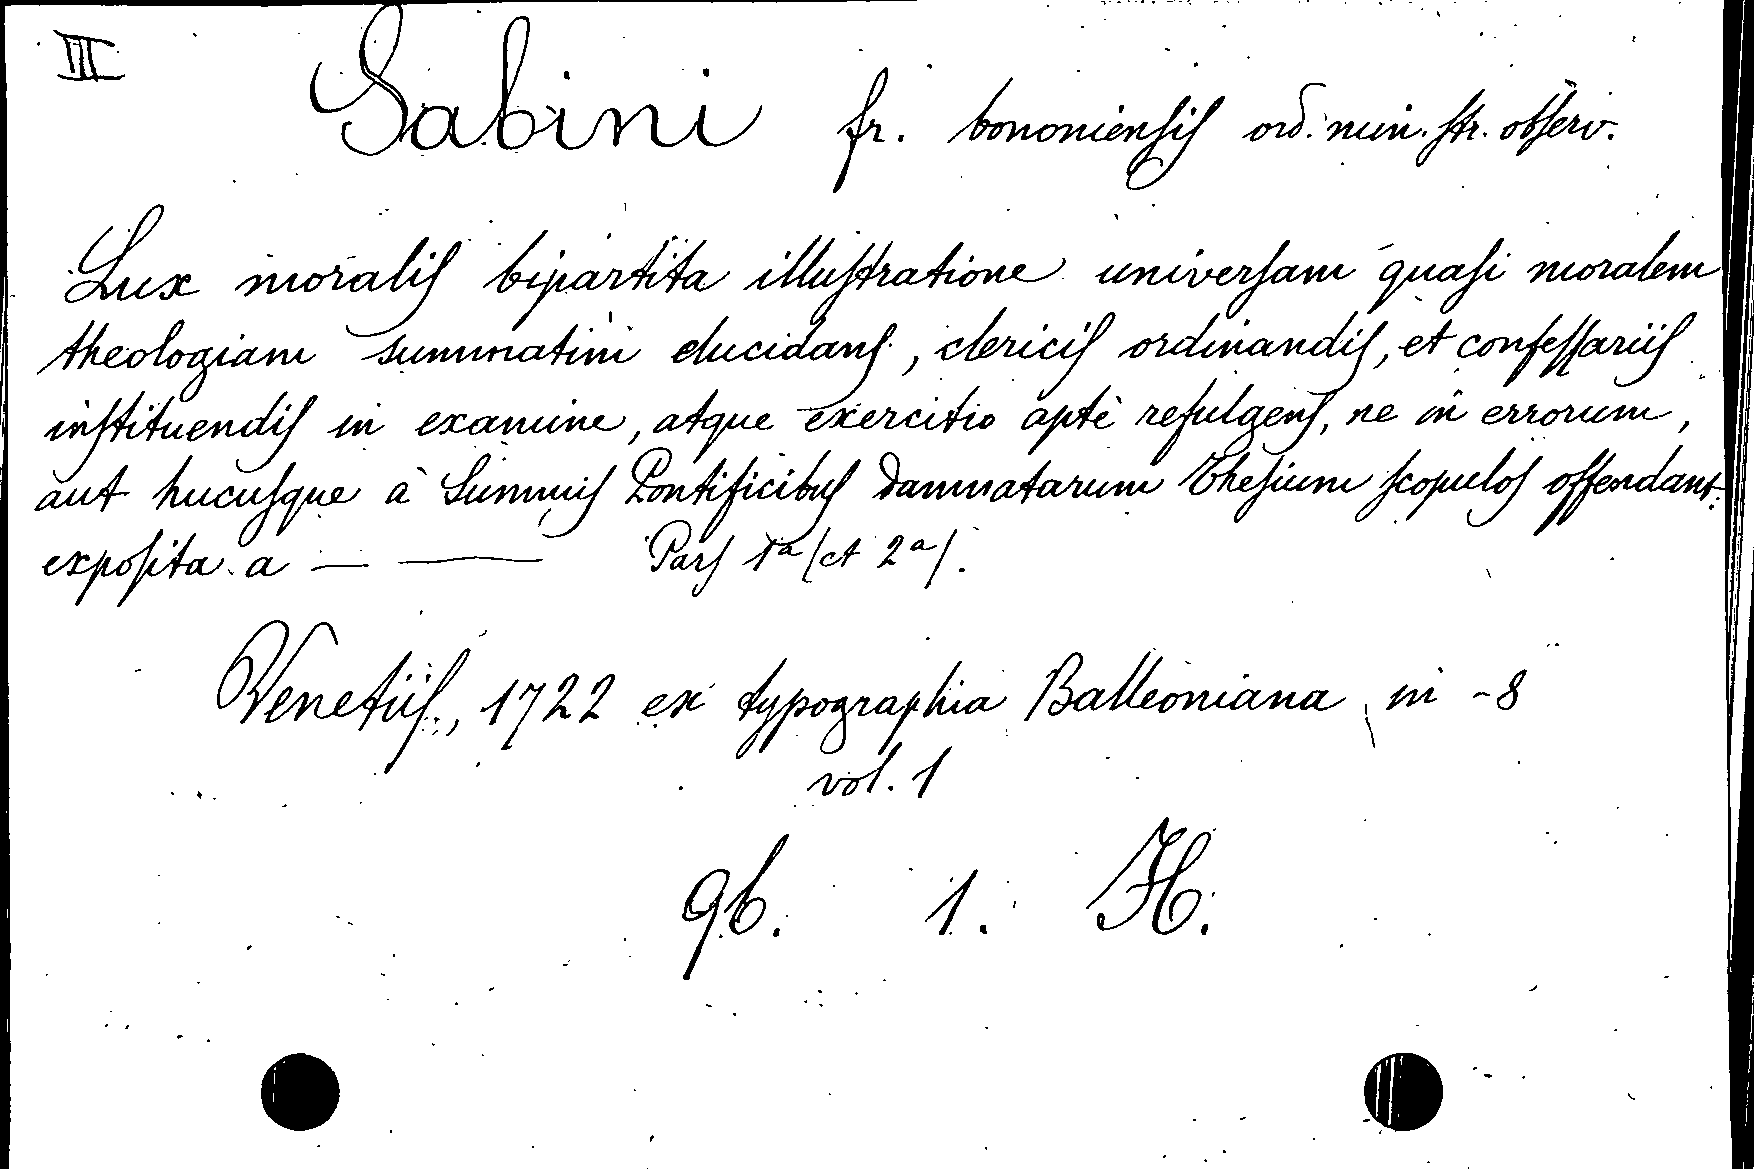 III
Sabini fr. bononiensis ord. min. str. observ.
Lux moralis bipartita illustratione universam quasi moralem
theologiam summatim elucidans, clericis ordinandis, et confessariis
instituendis in examine, atque exercitio aptè refulgens, ne in errorum,
aut hucusque à Summis Pontificibus damnatarum Thesium scopulos offendant.
exposita a — —— Pars 1ª (et 2ª).
Venetiis, 1722 ex typographia Balleoniana in -8
vol. 1
9b. 1. H.